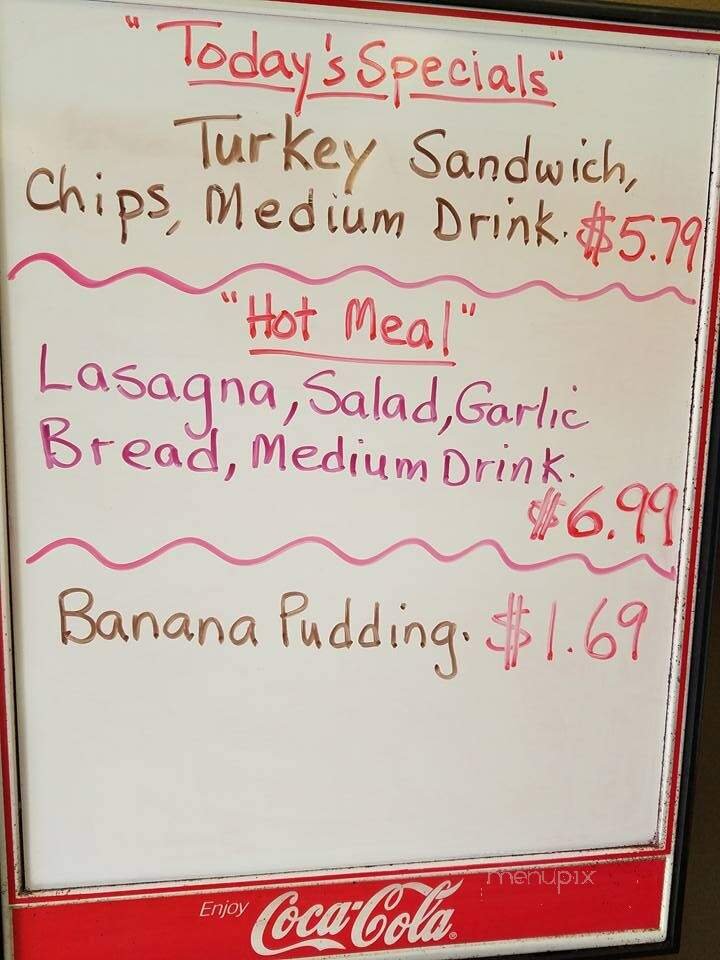 "Today's Specials"
Turkey Sandwich,
Chips, Medium Drink. $5.79
"Hot Meal"
Lasagna, Salad, Garlic
Bread, Medium Drink.
$6.99
Banana Pudding. $1.69
menupix
Enjoy Coca-Cola®